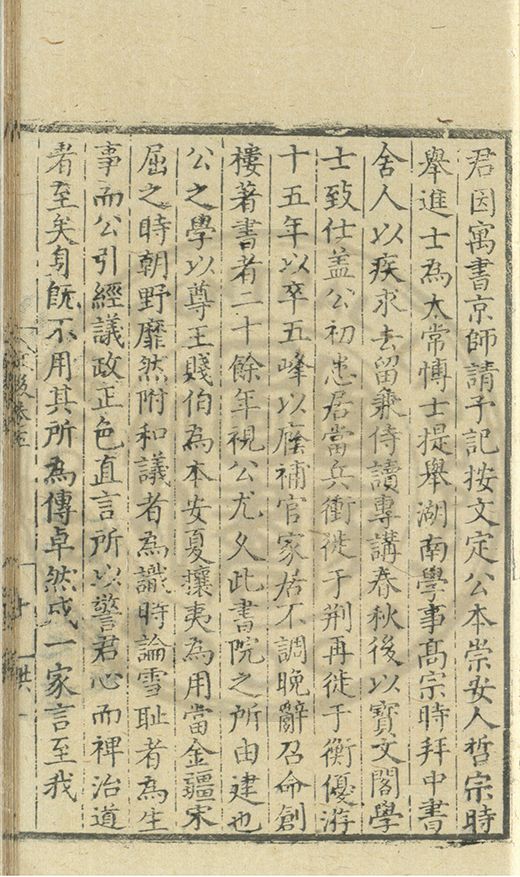 君因寓書京師請予記按文定公本崇安人哲宗時
舉進士為太常博士提舉湖南學事高宗時拜中書
舍人以疾求去留兼侍讀專講春秋後以寶文閣學
士致仕盖公初患居當兵衝徙于荆再徙于衡優游
十五年以卒五峰以廕補官家居不調晚辭召命創
樓著書者二十餘年視公尤久此書院之所由建也
公之學以尊王賤伯為本安夏攘夷為用當金疆宋
屈之時朝野靡然附和議者為識時論雪耻者為生
事而公引經議政正色直言所以警君心而裨治道
者至矣身既不用其所為傳卓然成一家言至我